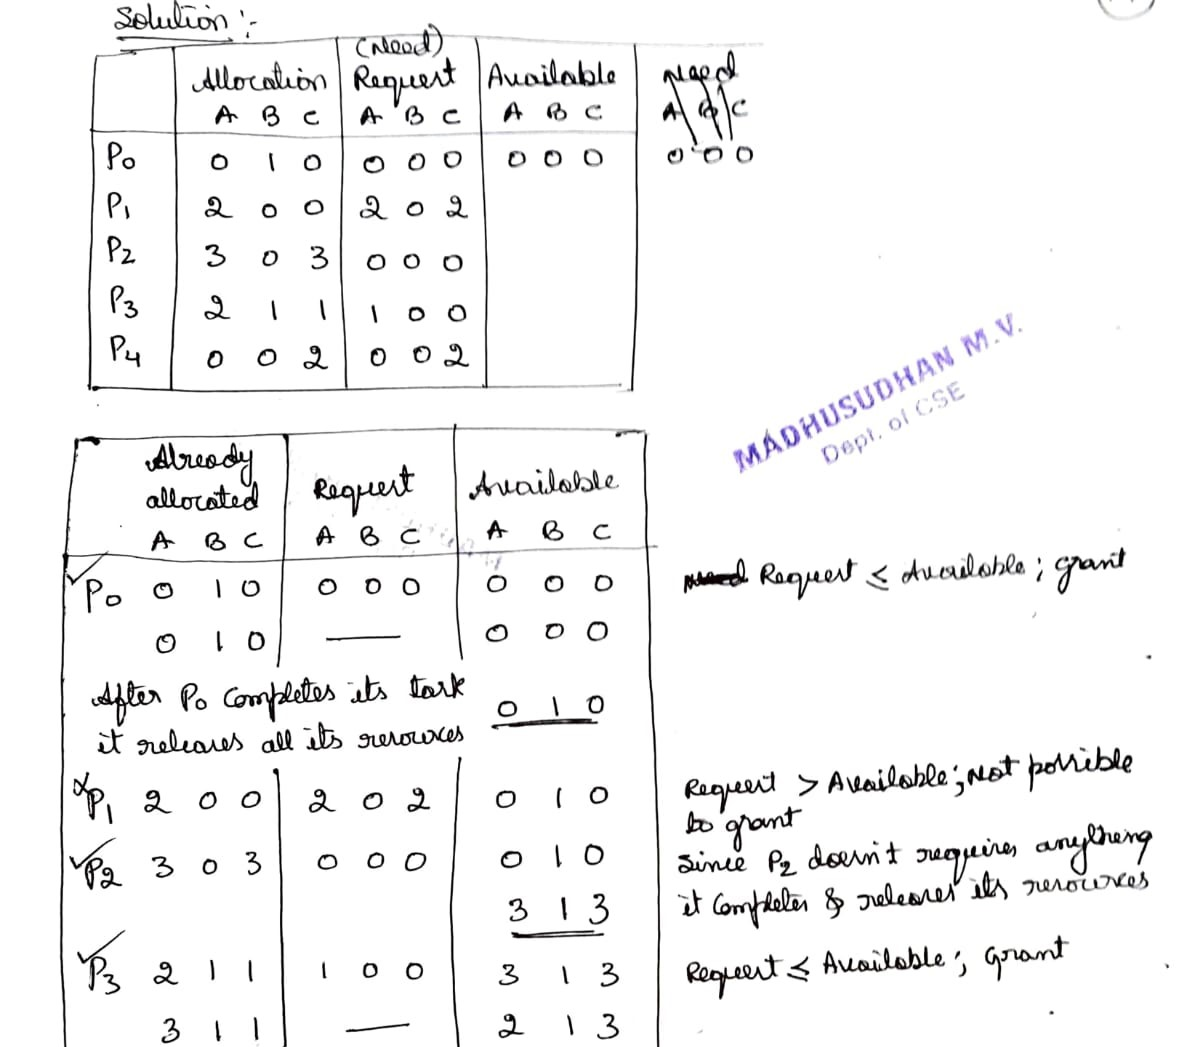 Solution :-
(Need)
Allocation Request Available Need
A B C A B C A B C A B C
P0 0 1 0 0 0 0 0 0 0 0 0 0
P1 2 0 0 2 0 2
P2 3 0 3 0 0 0
P3 2 1 1 1 0 0
P4 0 0 2 0 0 2
MADHUSUDHAN M.V.
Dept. of CSE
Already
allocated Request Available
A B C A B C A B C
P0 0 1 0 0 0 0 0 0 0 Request ≤ Available ; grant
0 1 0 — 0 0 0
After P0 Completes its task
it releases all its resources 0 1 0
P1 2 0 0 2 0 2 0 1 0 Request > Available ; Not possible
to grant
P2 3 0 3 0 0 0 0 1 0 Since P2 doesn't requires anything
3 1 3 it Completes & releases its resources
P3 2 1 1 1 0 0 3 1 3 Request ≤ Available ; grant
3 1 1 — 2 1 3